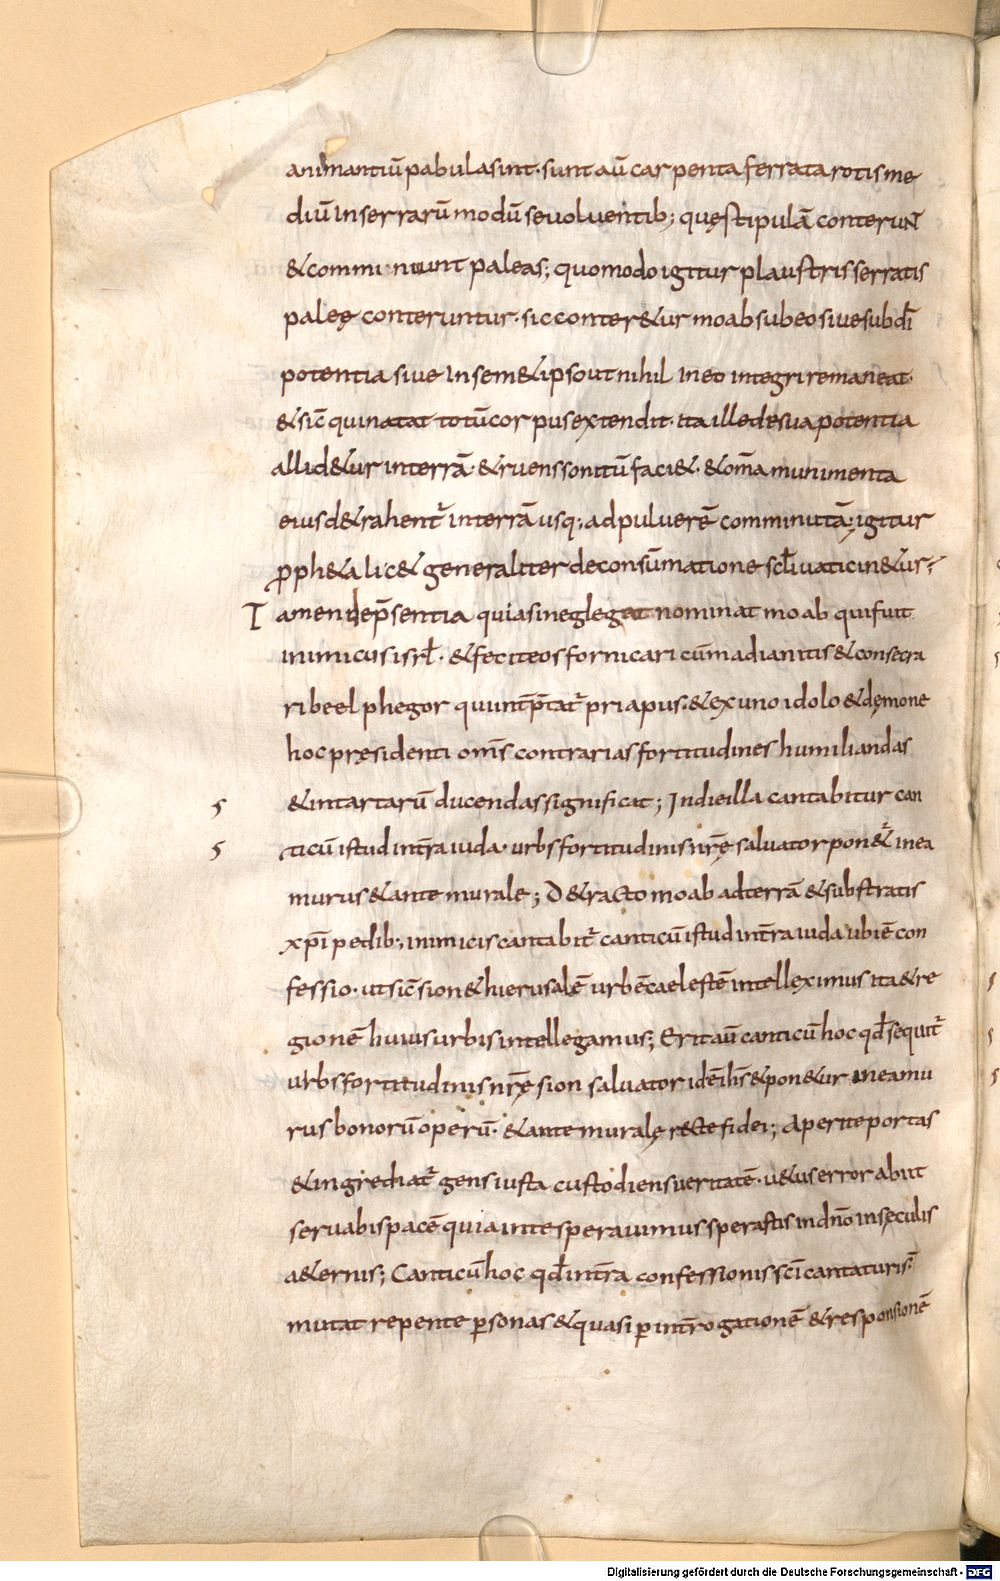 animantiū pabula sint · sunt aū carpenta ferrata rotis me
diū in serrarū modū se uoluentib; quę stipulā conterunt
& comminuunt paleas; quomodo igitur plaustris serratis
paleę conteruntur · sic conter&ur moab sub eo siue sub dī
potentia siue in sem&ipso ut nihil in eo integri remaneat ·
& sic̄ qui natat totū corpus extendit · ita ille de sua potentia
allid&ur in terrā · & ruens sonitū faci& · & om̄a munimenta
eius d&rahent᷒ in terrā usq; ad puluerē comminutā; igitur
ꝓph&a lic& generaliter de consūmatione scl̄i uaticin&ur;
Tamen de p̄sentia quia si neglegeat nominat moab qui fuit
inimicus isrl̄ · & fecit eos fornicari cū madianitis & consecra
ri beel phegor qui int̄p̄tat᷒ priapus · & ex uno idolo & dęmone
hoc pręsidenti om̄s contrarias fortitudines humiliandas
5 & in tartarū ducendas significat; In die illa cantabitur can
5 ticū istud in t̄ra iuda · urbs fortitudinis nr̄ę saluator pon&᷒ in ea
murus & ante murale; D&racto moab ad terrā & substratis
xp̄i pedib; inimicis cantabit᷒ canticū istud in t̄ra iuda ubi ē con
fessio · ut sic̄ sion & hierusalē urbē caelestē intelleximus ita & re
gionē huius urbis intellegamus; Erit aū canticū hoc qd̄ sequit᷒
urbs fortitudinis nr̄ę sion saluator idē ih̄s & pon&ur in ea mu
rus bonorū operū · & ante muralę rectę fidei; Aperite portas
& ingrediat᷒ gens iusta custodiens ueritatē · u&us error abiit
seruabis pacē quia in te sperauimus sperastis in dn̄o in sęculis
a&ernis; Canticū hoc qd̄ in t̄ra confessionis sc̄i cantaturi s̄
mutat repente ꝑsonas & quasi ꝑ int̄rogationē & responsionē
Digitalisierung gefördert durch die Deutsche Forschungsgemeinschaft - DFG